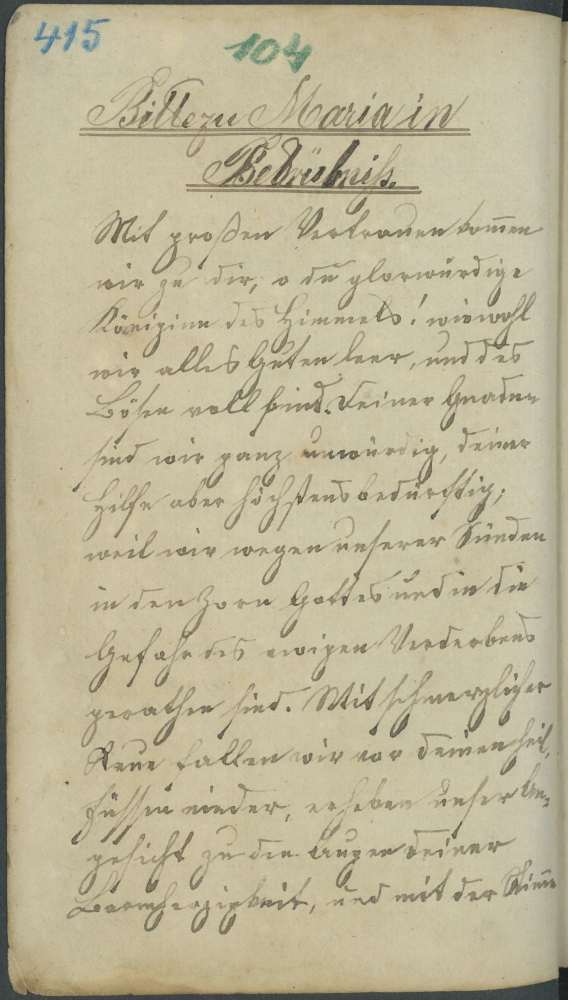 415
104
Bitte zu Maria in
Betrübniß.
Mit großen Vertrauen kom̅en
wir zu dir, o du glorwürdige
Königinn des Himmels! wiewohl
wir alles Guten leer, und des
Bösen voll sind. Deiner Gnaden
sind wir ganz unwürdig, deiner
Hilfe aber höchstens bedürftig;
weil wir wegen unserer Sünden
in den Zorn Gottes und in die
Gefahr des ewigen Verderbens
gerathen sind. Mit schmerzlicher
Reue fallen wir vor deinen heil.
Füssen nieder, erheben unser An-
gesicht zu den Augen deiner
Barmherzigkeit, und mit der Stim̅e